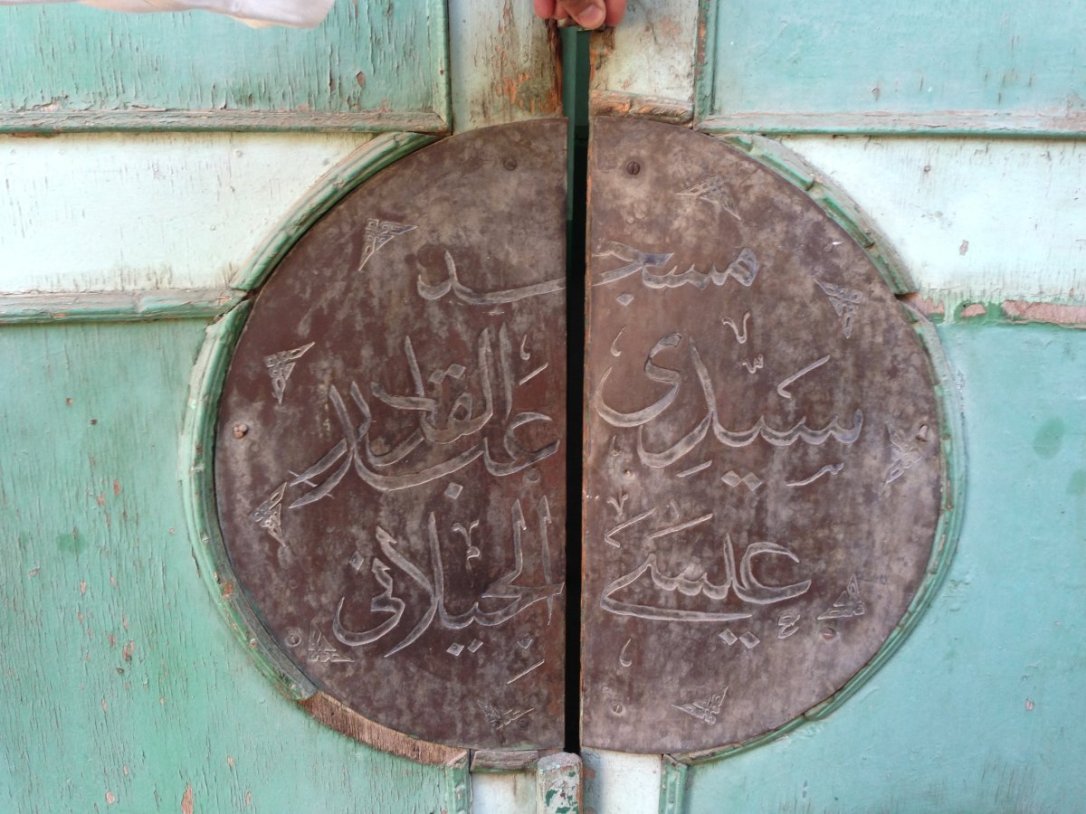 مسجد
سيدي عبد القادر
عيسى الجيلاني